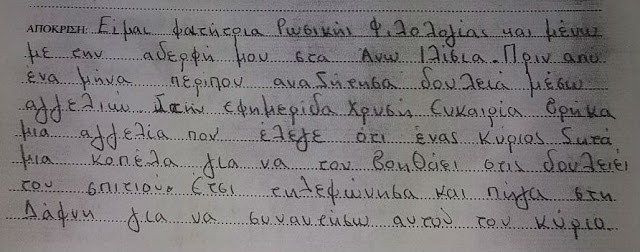 ΑΠΟΚΡΙΣΗ: Είμαι φοιτήτρια Ρωσικής Φιλολογίας και μένω
με την αδερφή μου στα Άνω Ιλίσια. Πριν από
ένα μήνα περίπου αναζήτησα δουλειά μέσω
αγγελιών. Στην εφημερίδα Χρυσή Ευκαιρία βρήκα
μια αγγελία που έλεγε ότι ένας κύριος ζητά
μια κοπέλα για να τον βοηθάει στις δουλειές
του σπιτιού. Έτσι τηλεφώνησα και πήγα στη
Δάφνη για να συναντήσω αυτού τον κύριο.